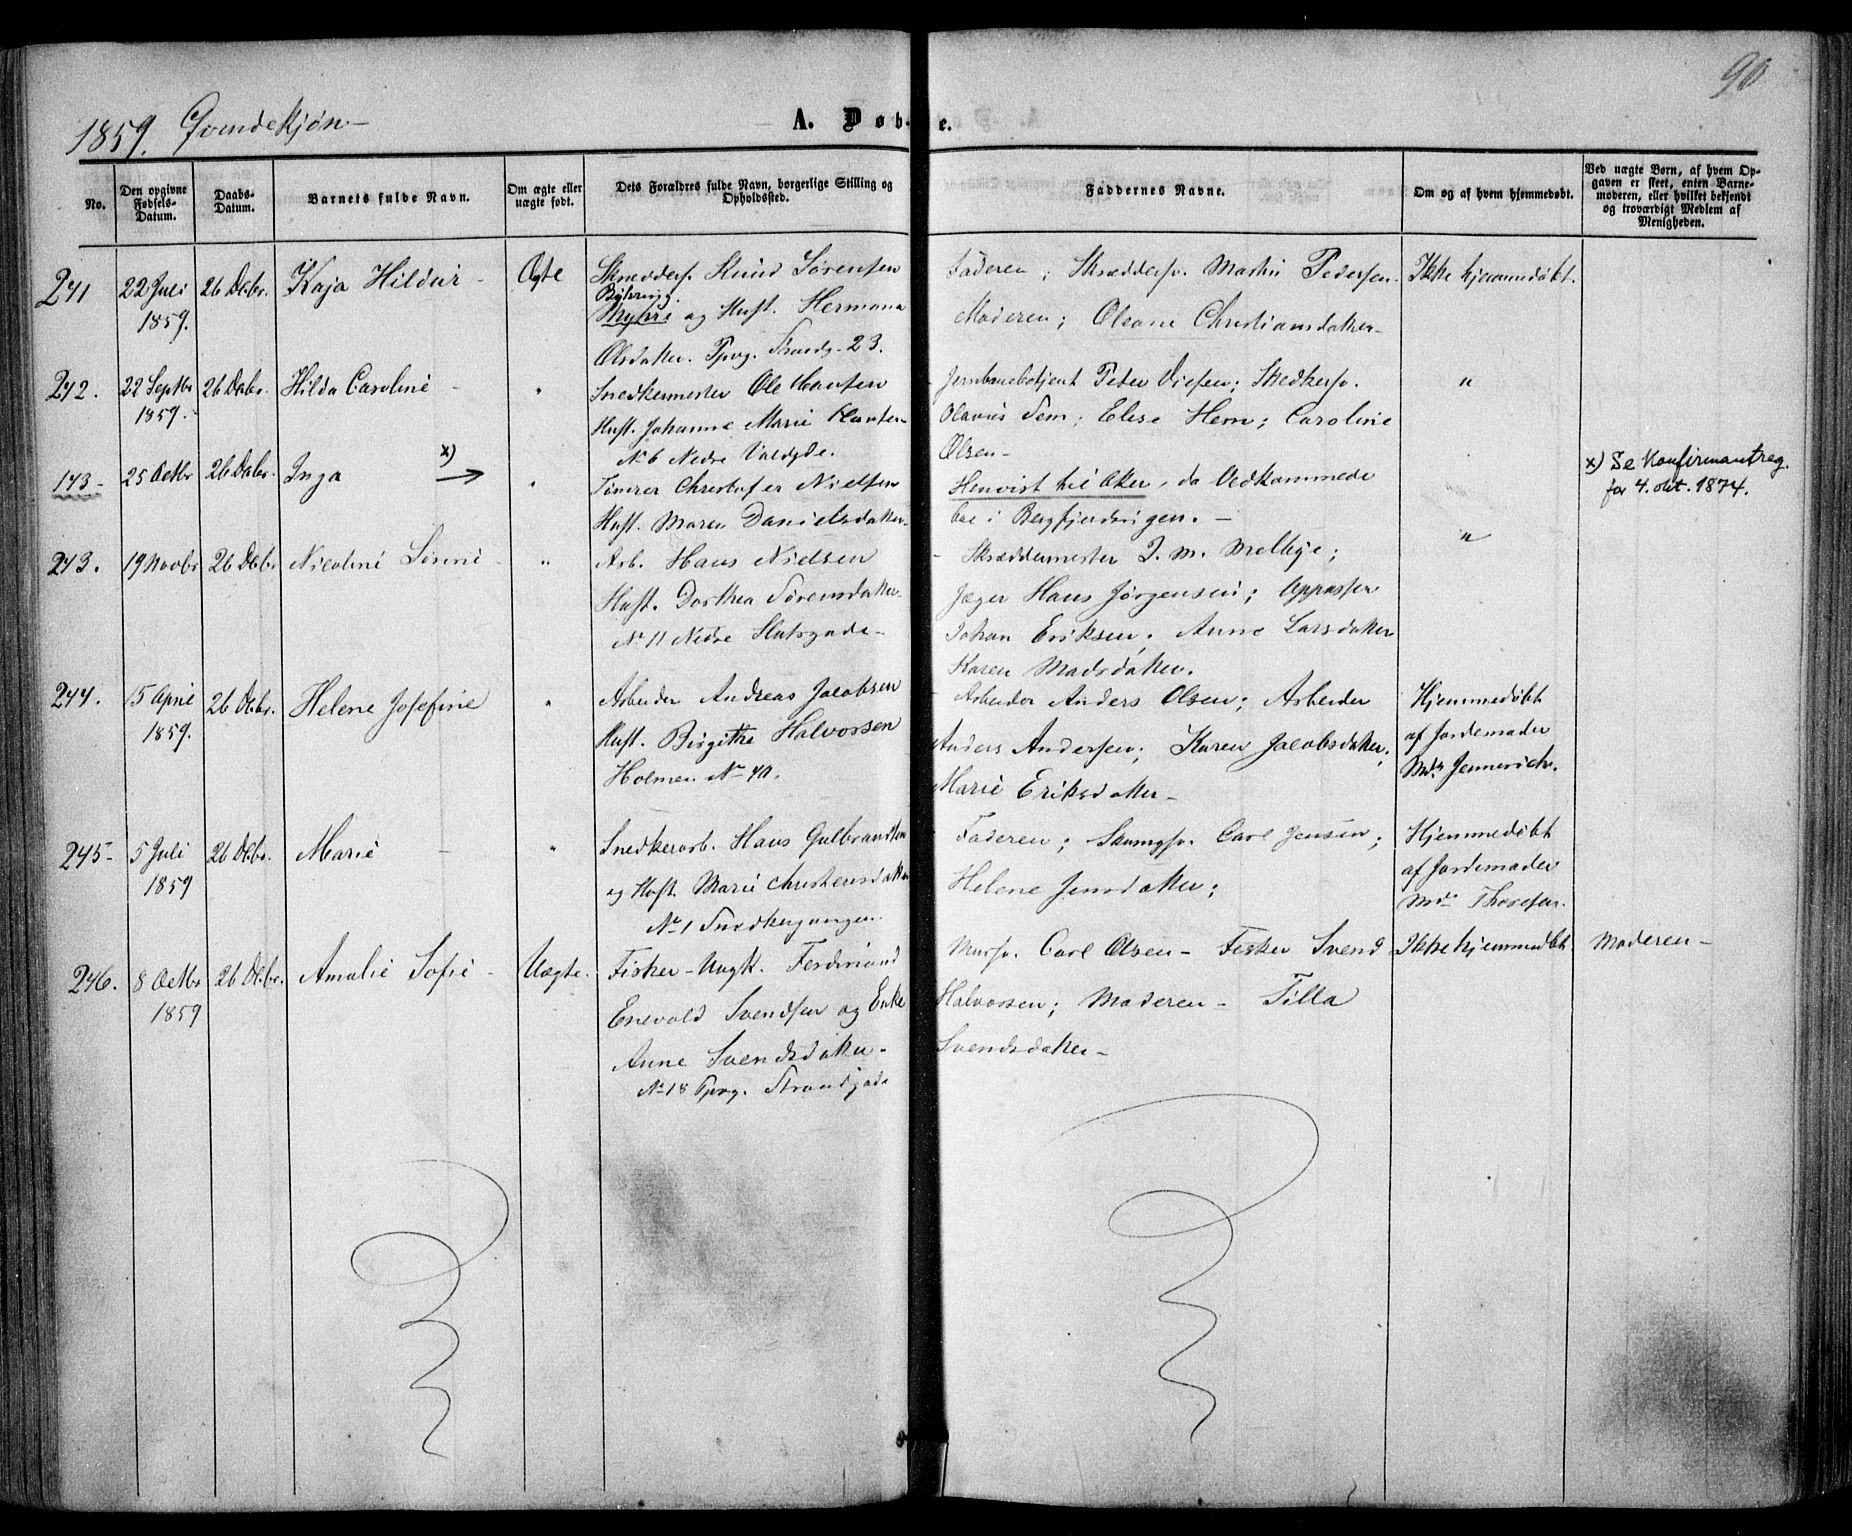 90
1859. Qvindekjøn -
A. Døb- e.
No.
Den opgivne Fødsels-Datum.
Daabs-Datum.
Barnets fulde Navn.
Om ægte eller uægte født.
Dets Forældres fulde Navn, borgerlige Stilling og Opholdssted.
Faddernes Navne.
Om og af hvem hjemmedøbt.
Ved uægte Børn, af hvem Opgaven er skeet, enten Barnemoderen, eller hvilket bekjendt og troværdigt Medlem af Menigheden.
241 22 Juli 1859. 26 Debr. Kaja Hildur - Ægte
Skreddersv. Sørensen
Myhre og Hust. Hermana
Olsdatter. Tpvg. Strandg. 23.
Faderen; Skræddersv. Martin Pedersen
Moderen; Oleane Christiansdatter
Ikke hjemmedøbt.
242. 22 Septbr 1859. 26 Debr. Hilda Caroline - "
Snedkermester Ole Hansen
Hust. Johanne Marie Hansen
No 6 Nedre
Jernbanebetjent Peter Olesen; Snedkersv.
Olavus Sem; Elise Hem; Caroline
Olsen -
"
143 - 25 Octbr 26 Debr. Inga x) → "
Tømrer Christofer Nielsen
Hust. Maren Danielsdatter
Henvist til Aker, da Vedkommende
boe i Bergfjerdingen. -
x) Se Konfirmantreg. for 4. okt. 1874.
243. 19 Novbr 26 Debr Nicoline - "
Arb. Hans Nielsen
Hust. Dorthea Sørensdatter
No 11 Nedre
Skræddermester J. M. Melbye;
Jæger Hans Jørgensen; Oppasser
Johan Eriksen; Anne Larsdatter
Karen Madsdatter.
"
244. 15 April 1859. 26 Debr. Helene Josefine "
Arbeider Andreas Jacobsen
Hust. Birgithe Halvorsen
Holmen No 40.
Arbeider Anders Olsen; Arbeider
Anders Andersen; Karen Jacobsdatter;
Marie Eriksdatter -
Hjemmedøbt
af Jordemoder
Md. Jennerich.
245 - 5 Juli 1859 26 Debr. Marie - "
Snedkerarb. Hans Gulbrandsen
og Hust. Marie Christensdatter
No 1 Snedkergangen
Faderen; Carl Jensen;
Helene Jensdatter;
Hjemmedøbt
af Jordemoder
Md. Thoresen.
246. 8 Octbr 1859 26 Debr. Amalie Sofie - Uægte.
Fisker - Ungk. Ferdinand
Enevold Svendsen og Enke
Anne Svendsdatter -
No 18 Tpvg. Strandgade
Mursv. Carl Olsen - Fisker Svend
Halvorsen; Moderen - Tilla
Svendsdatter -
Ikke hjemmedøbt
Moderen -